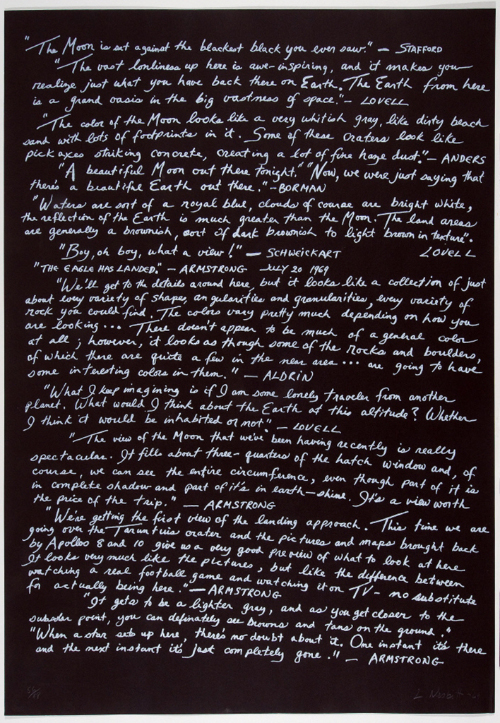 "The Moon is set against the blackest black you ever saw." — STAFFORD
"The vast lonliness up here is awe-inspiring, and it makes you
realize just what you have back there on Earth. The Earth from here
is a grand oasis in the big vastness of space." — LOVELL
"The color of the Moon looks like a very whitish gray, like dirty beach
sand with lots of footprints in it. Some of these craters look like
pick axes striking concrete, creating a lot of fine haze dust." — ANDERS
"A beautiful Moon out there tonight." "Now, we were just saying that
there's a beautiful Earth out there." — BORMAN
"Waters are sort of a royal blue, clouds of course are bright white,
the reflection of the Earth is much greater than the Moon. The land areas
are generally a brownish, sort of dark brownish to light brown in texture".
"Boy, oh boy, what a view!" — SCHWEICKART LOVELL
"THE EAGLE HAS LANDED." — ARMSTRONG JULY 20 1969
"We'll get to the details around here, but it looks like a collection of just
about every variety of shapes, angularities and granularities, every variety of
rock you could find. The colors vary pretty much depending on how you
are looking ... There doesn't appear to be much of a general color
at all; however, it looks as though some of the rocks and boulders,
of which there are quite a few in the near area ... are going to have
some interesting colors in them." — ALDRIN
"What I keep imagining is if I am some lonely traveler from another
planet. What would I think about the Earth at this altitude? Whether
I think it would be inhabited or not" — LOVELL
"The view of the Moon that we've been having recently is really
spectacular. It fills about three-quarters of the hatch window and, of
course, we can see the entire circumference, even though part of it is
in complete shadow and part of it's in earth-shine. It's a view worth
the price of the trip." — ARMSTRONG
"We're getting the first view of the landing approach. This time we are
going over the Taruntius crater and the pictures and maps brought back
by Apollos 8 and 10 give us a very good preview of what to look at here
It looks very much like the pictures, but like the difference between
watching a real football game and watching it on TV - no substitute
for actually being here." — ARMSTRONG
"It gets to be a lighter gray, and as you get closer to the
subsolar point, you can definately see browns and tans on the ground."
"When a star sets up here, there's no doubt about it. One instant it's there
and the next instant it's just completely gone." — ARMSTRONG